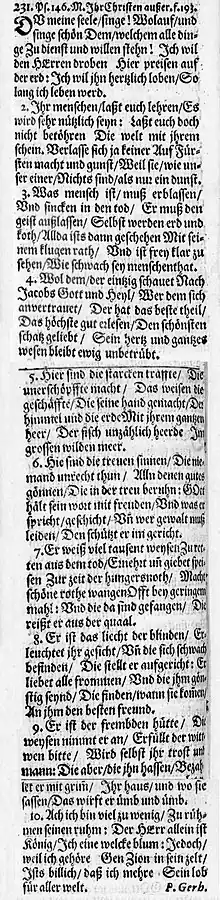 231. Ps. 146. M. Ihr Christen außer. f. 193.
DU meine seele/ singe! Wolauf/ und
singe schön Dem/ welchem alle din-
ge Zu dienst und willen stehn! Ich wil
den HErren droben Hier preisen auf
der erd: Ich wil ihn hertzlich loben/ So
lang ich leben werd.
2. Ihr menschen/ laßt euch lehren/ Es
wird sehr nützlich seyn: Laßt euch doch
nicht bethören Die welt mit ihrem
schein. Verlasse sich ja keiner Auf Für-
sten macht und gunst/ Weil sie/ wie un-
ser einer/ Nichts sind/ als nur ein dunst.
3. Was mensch ist/ muß erblassen/
Und sincken in den tod/ Er muß den
geist außlassen/ Selbst werden erd und
koth/ Allda ists dann geschehen Mit sei-
nem klugen rath/ Und ist frey klar zu
sehen/ Wie schwach sey menschenthat.
4. Wol dem/ der eintzig schauet Nach
Jacobs Gott und Heyl/ Wer dem sich
anvertrauet/ Der hat das beste theil/
Das höchste gut erlesen/ Den schönsten
schatz geliebt/ Sein hertz und gantzes
wesen bleibt ewig unbetrübt.
5. Hier sind die starcken kräffte/ Die
unerschöpffte macht/ Das weisen die
geschäffte/ Die seine hand gemacht/ Der
himmel und die erde Mit ihrem gantzen
heer/ Der fisch unzählich heerde Im
grossen wilden meer.
6. Hie sind die treuen sinnen/ Die nie-
mand unrecht thun/ Alln denen gutes
gönnen/ Die in der treu beruhn: GOtt
hält sein wort mit freuden/ Und was er
spricht/ geschicht/ Uñ wer gewalt muß
leiden/ Den schützt er im gericht.
7. Er weiß viel tausent weysen Zu ret-
ten aus dem tod/ Ernehrt uñ giebet spei-
sen Zur zeit der hungersnoth/ Macht
schöne rothe wangen Offt bey geringem
mahl: Und die da sind gefangen/ Die
reißt er aus der quaal.
8. Er ist das liecht der blinden/ Er-
leuchtet ihr gesicht/ Uñ die sich schwach
befinden/ Die stellt er aufgericht: Er
liebet alle frommen/ Und die ihm gün-
stig seynd/ Die finden/ wann sie kom̃en/
An ihm den besten freund.
9. Er ist der frembden hütte/ Die
weysen nimmt er an/ Erfüllt der wit-
wen bitte/ Wird selbst ihr trost und
mann: Die aber/ die ihn hassen/ Bezah-
let er mit grim̃/ Ihr haus/ und wo sie
sassen/ Das wirft er üm̃b und üm̃b.
10. Ach ich bin viel zu wenig/ Zu rüh-
men seinen ruhm: Der HErr allein ist
König/ Ich eine welcke blum: Jedoch/
weil ich gehöre Gen Zion in sein zelt/
Ists billich/ daß ich mehre Sein lob
für aller welt. P. Gerh.